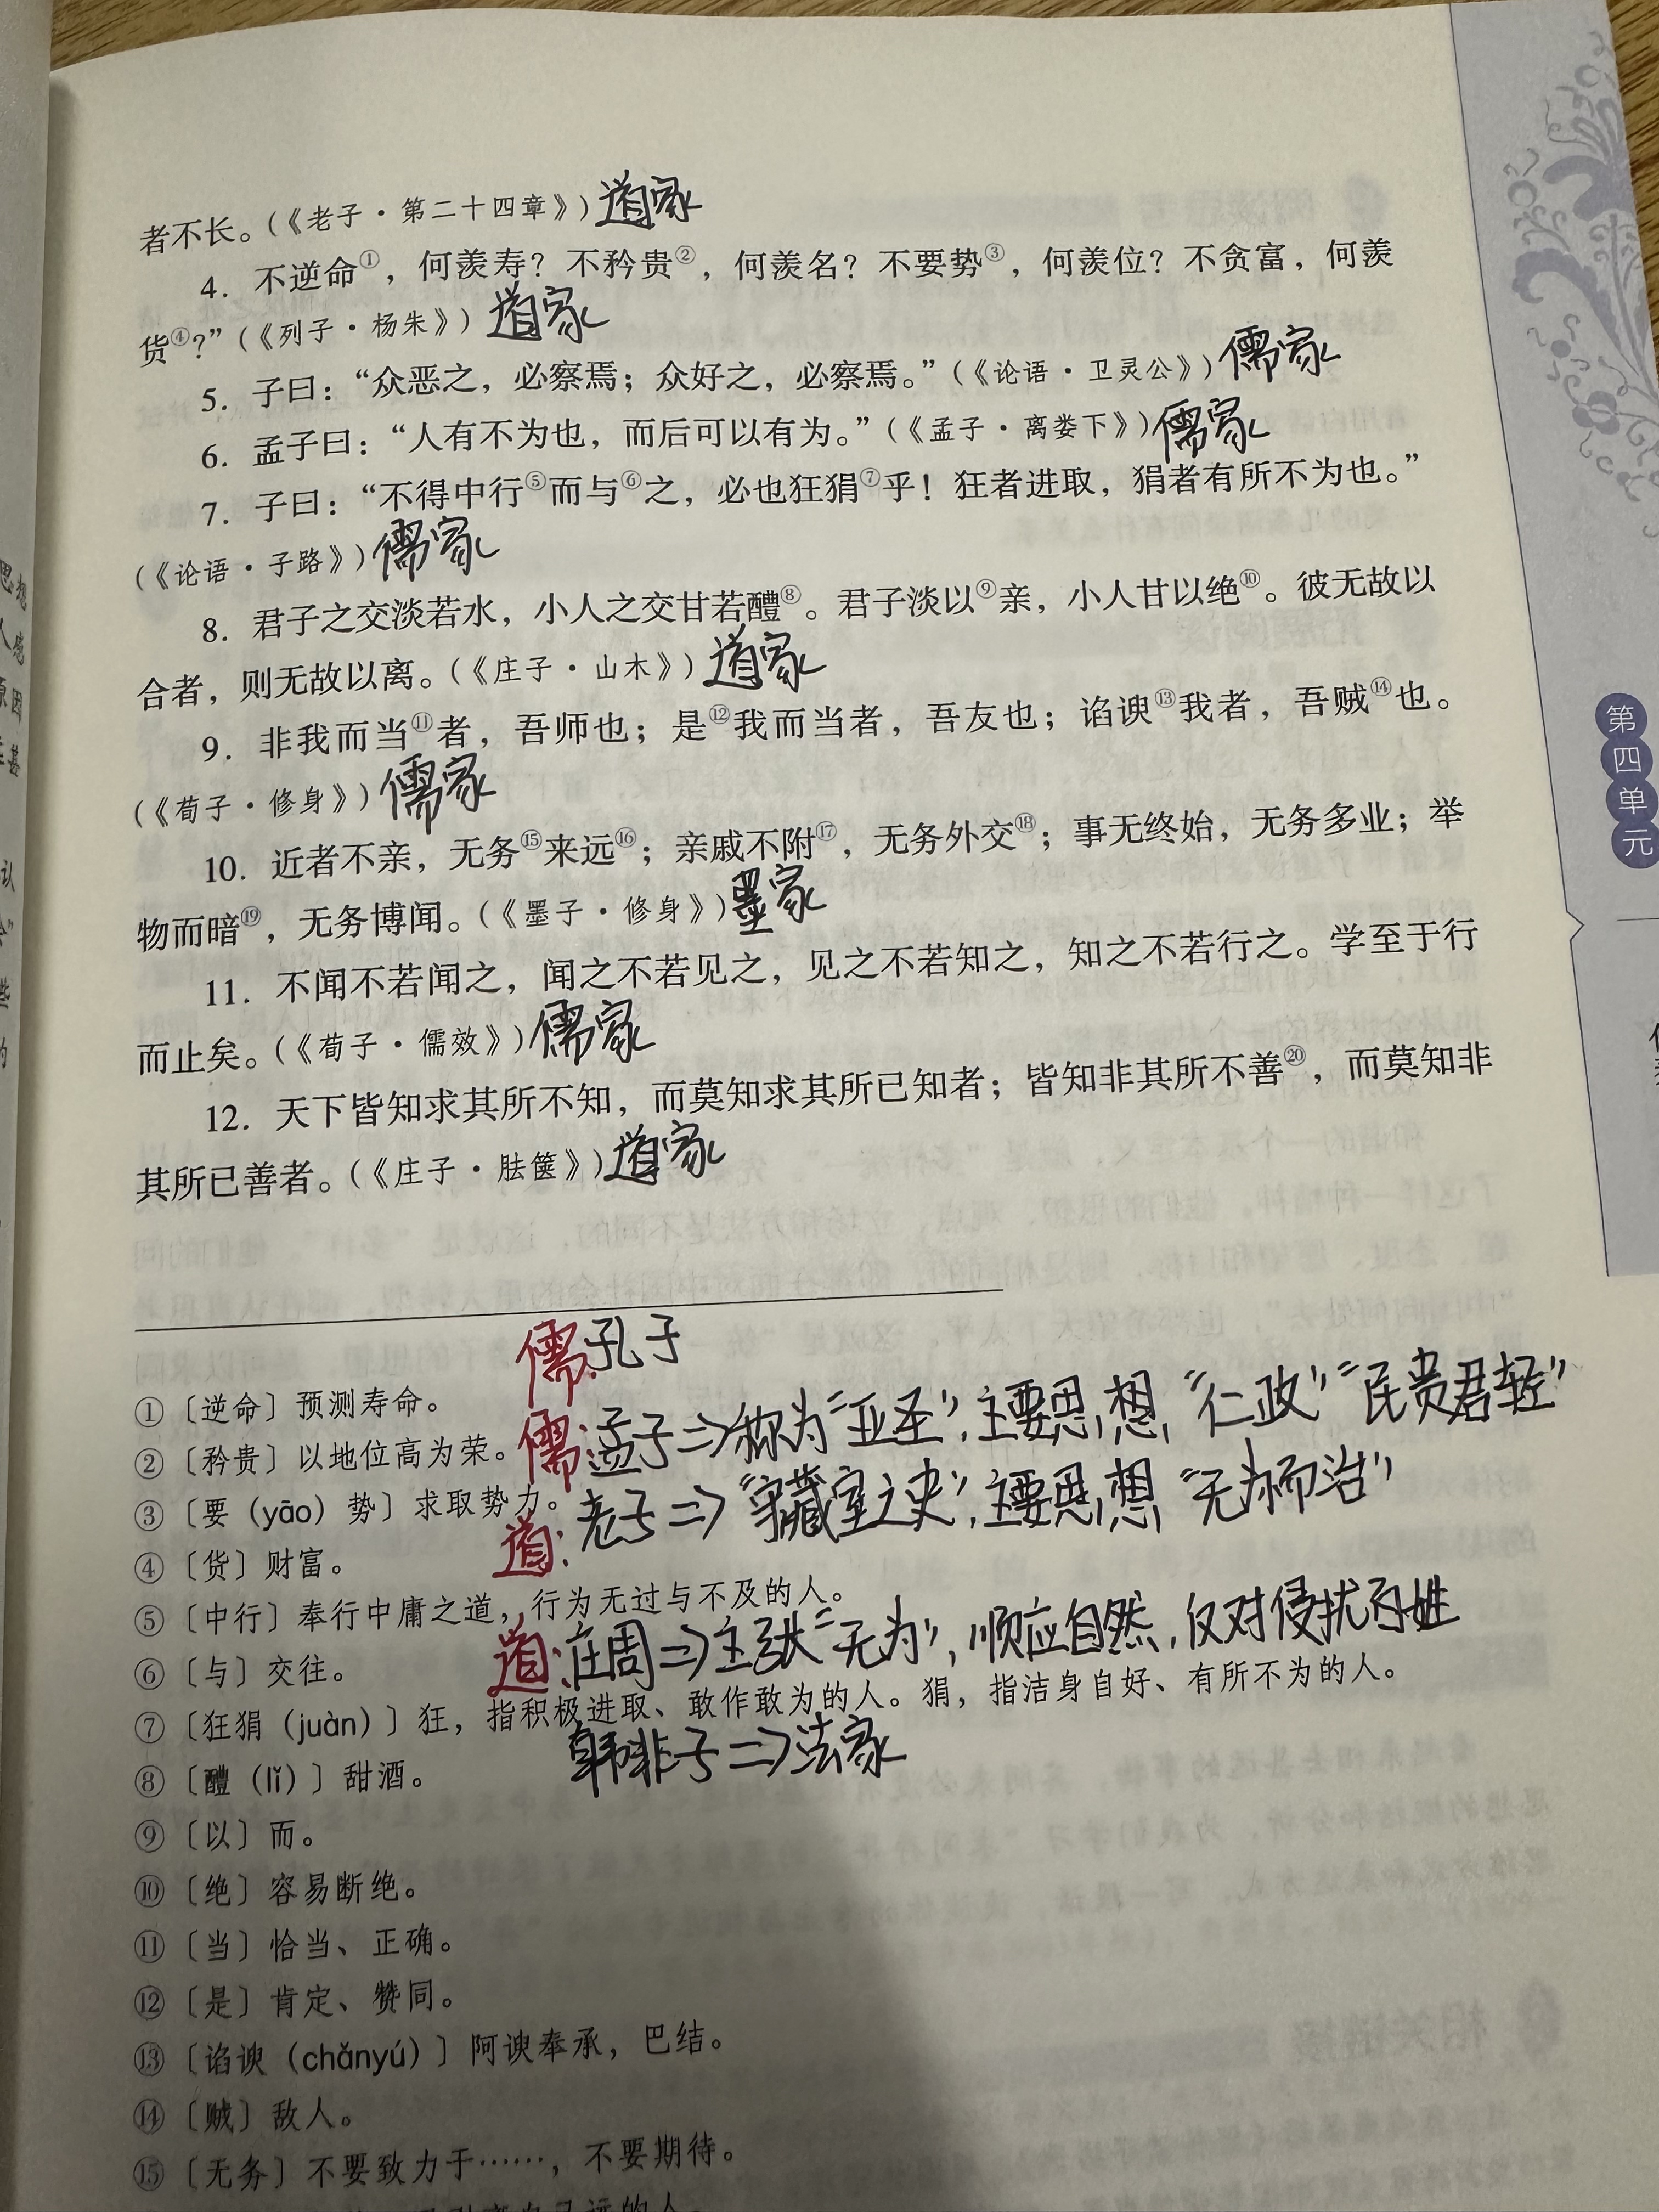 者不长。(《老子·第二十四章》) 道家
4. 不逆命①，何羡寿？不矜贵②，何羡名？不要势③，何羡位？不贪富，何羡
货④？”(《列子·杨朱》) 道家
5. 子曰：“众恶之，必察焉；众好之，必察焉。”(《论语·卫灵公》) 儒家
6. 孟子曰：“人有不为也，而后可以有为。”(《孟子·离娄下》) 儒家
7. 子曰：“不得中行⑤而与⑥之，必也狂狷⑦乎！狂者进取，狷者有所不为也。”
(《论语·子路》) 儒家
8. 君子之交淡若水，小人之交甘若醴⑧。君子淡以⑨亲，小人甘以绝⑩。彼无故以
合者，则无故以离。(《庄子·山木》) 道家
9. 非我而当⑪者，吾师也；是⑫我而当者，吾友也；谄谀⑬我者，吾贼⑭也。
(《荀子·修身》) 儒家
10. 近者不亲，无务⑮来远⑯；亲戚不附⑰，无务外交⑱；事无终始，无务多业；举
物而暗⑲，无务博闻。(《墨子·修身》) 墨家
11. 不闻不若闻之，闻之不若见之，见之不若知之，知之不若行之。学至于行
而止矣。(《荀子·儒效》) 儒家
12. 天下皆知求其所不知，而莫知求其所已知者；皆知非其所不善⑳，而莫知非
其所已善者。(《庄子·胠箧》) 道家
第四单元
儒:孔子
①〔逆命〕预测寿命。
儒:孟子⇒称为“亚圣”,主要思想“仁政”“民贵君轻”
②〔矜贵〕以地位高为荣。
③〔要（yāo）势〕求取势力。
道:老子⇒“守藏室之史”,主要思想“无为而治”
④〔货〕财富。
⑤〔中行〕奉行中庸之道，行为无过与不及的人。
道:庄周⇒主张“无为”,顺应自然,仅对侵扰百姓
⑥〔与〕交往。
⑦〔狂狷（juàn）〕狂，指积极进取、敢作敢为的人。狷，指洁身自好、有所不为的人。
韩非子⇒法家
⑧〔醴（lǐ）〕甜酒。
⑨〔以〕而。
⑩〔绝〕容易断绝。
⑪〔当〕恰当、正确。
⑫〔是〕肯定、赞同。
⑬〔谄谀（chǎnyú）〕阿谀奉承，巴结。
⑭〔贼〕敌人。
⑮〔无务〕不要致力于……，不要期待。